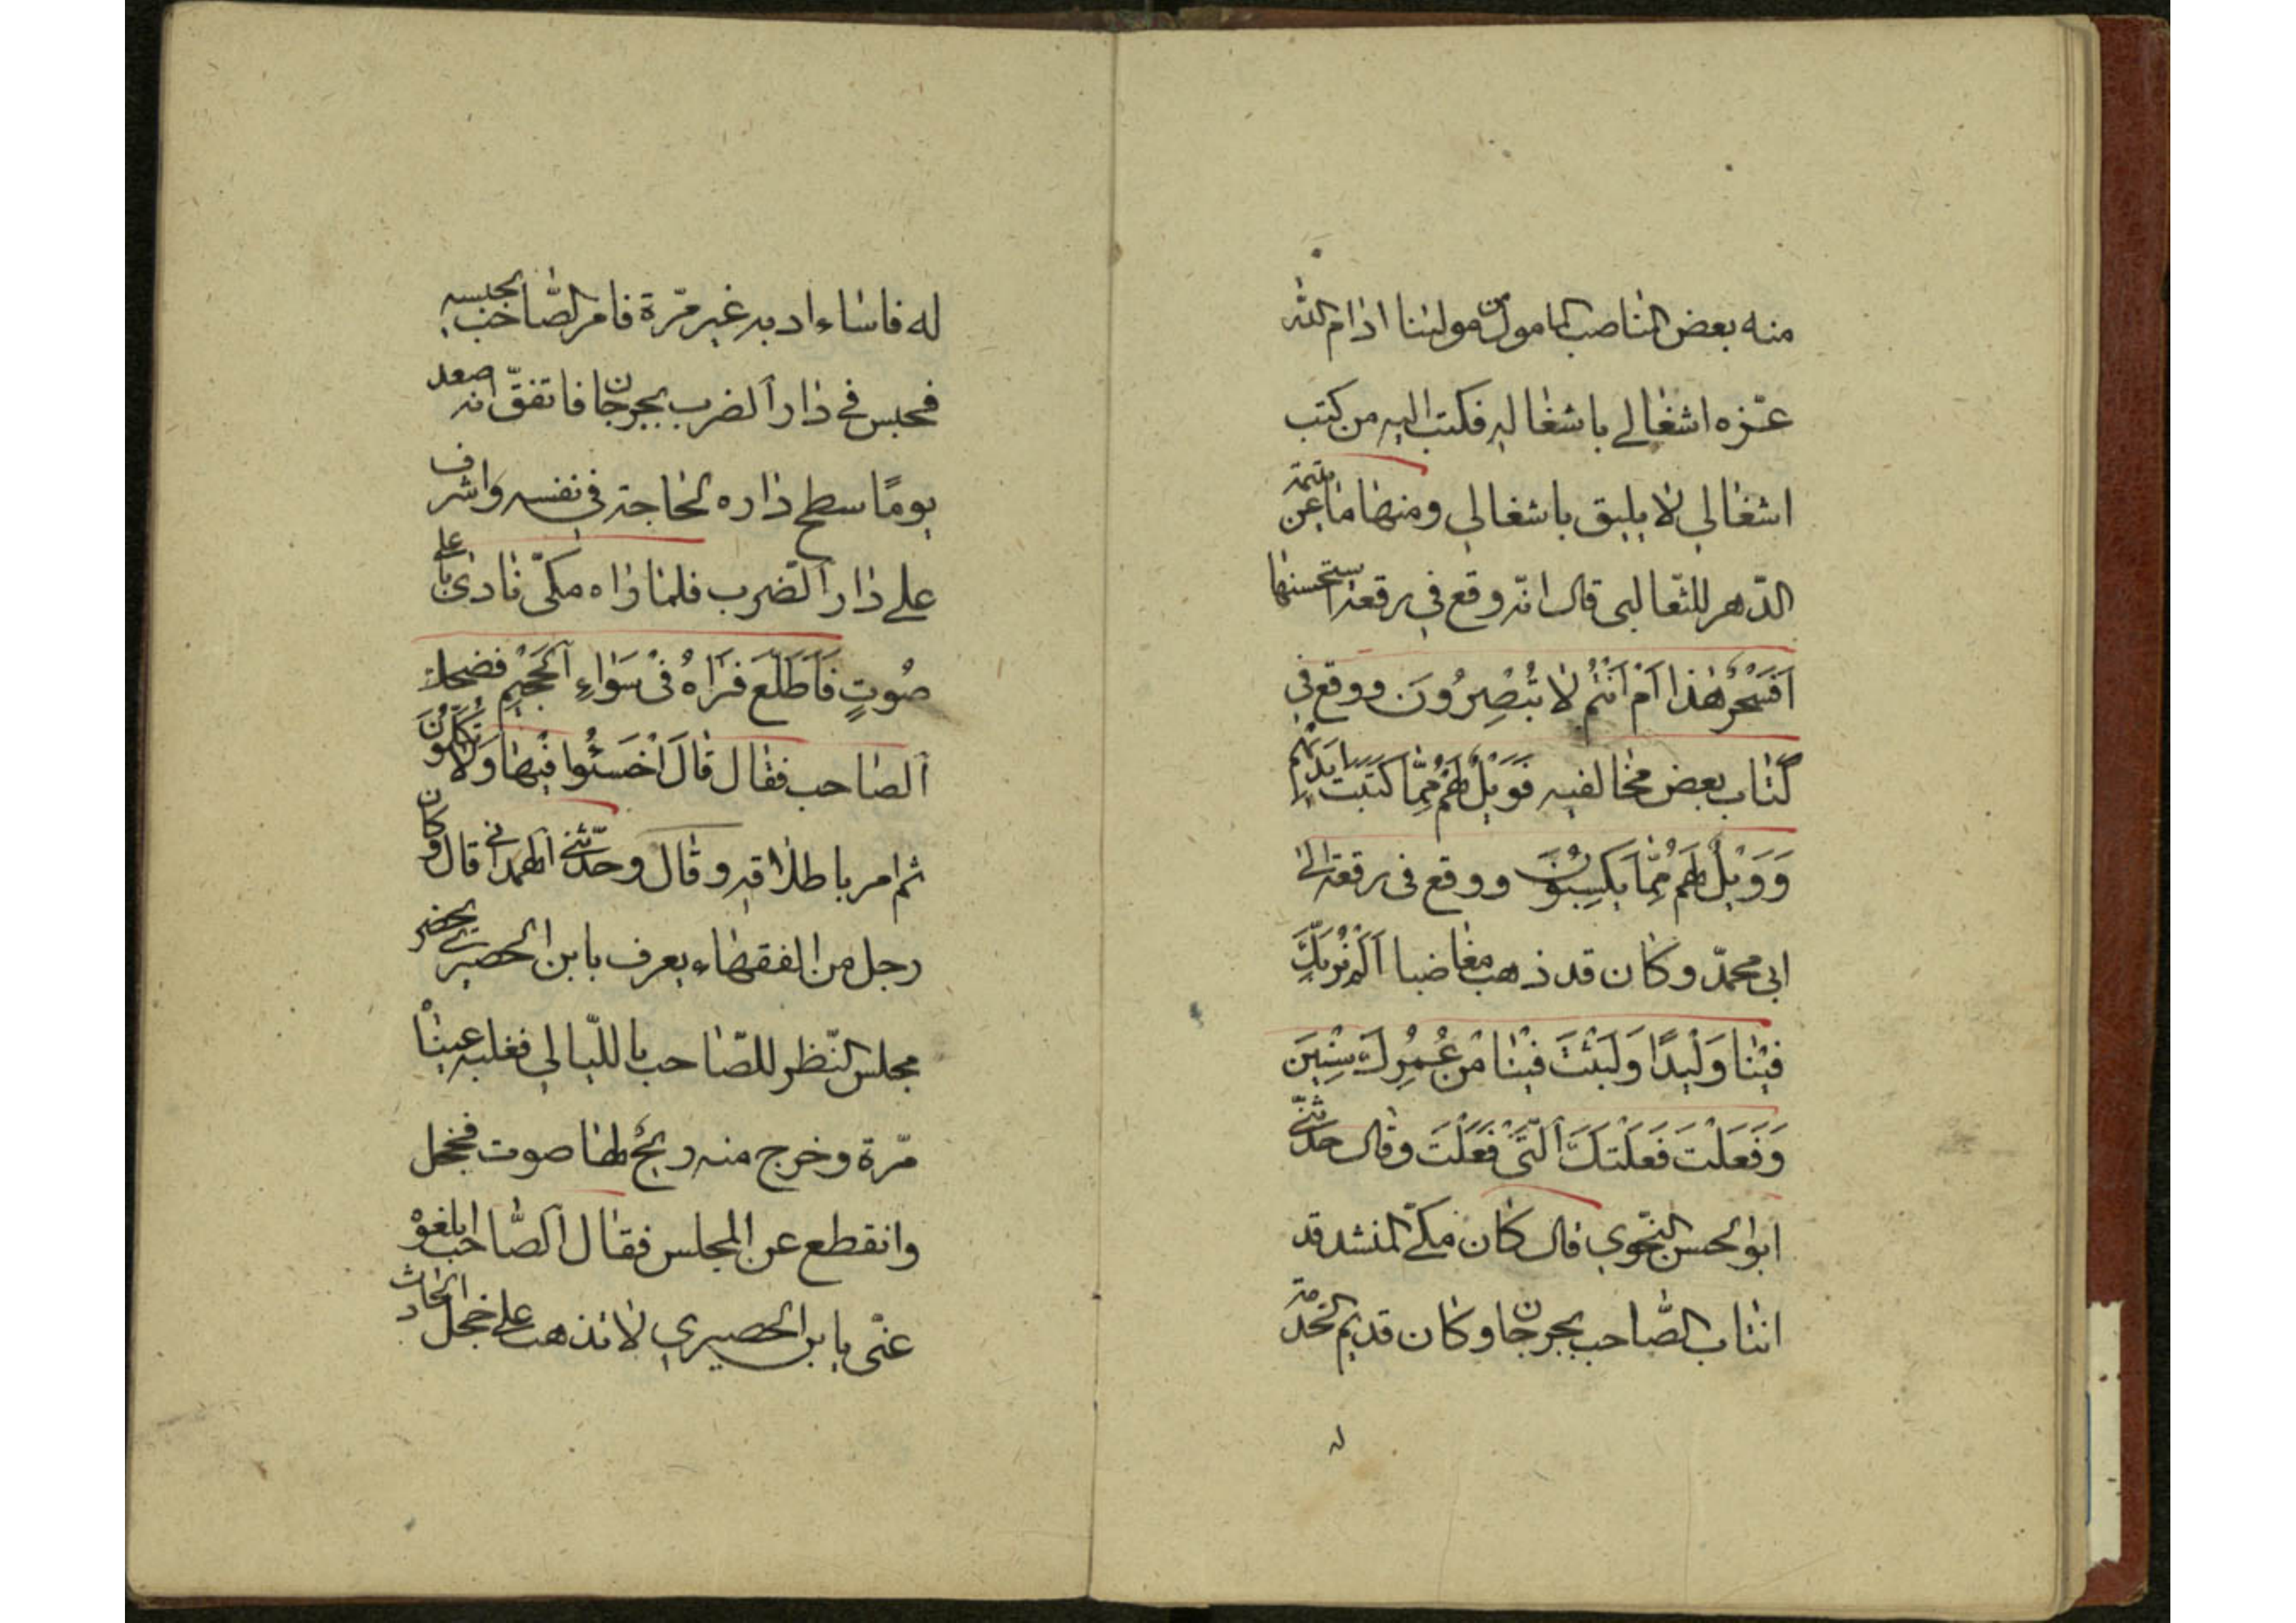 منه بعض المناصب المأمول من مولينا ادام الله
عزه اشغالي باشغاله فكتب اليه من كتب
اشغالي لا يليق باشغالي ومنها ما عن يتيمة
الدهر للثعالبي قال انه وقع في رقعة استحسنها
اَفَسِحْرٌ هٰذا اَمْ اَنْتُمْ لا تُبْصِرُونَ ووقع في
كتاب بعض مخالفيه فَوَيْلٌ لَهُمْ مِمَّا كَتَبَتْ اَيْدِيْهِمْ
وَوَيْلٌ لَهُمْ مِمَّا يَكْسِبُونَ ووقع في رقعة الى
ابى محمد وكان قد ذهب مغاضبا اَلَمْ نُرَبِّكَ
فِيْنا وَلِيْدًا وَلَبِثْتَ فِيْنا مِنْ عُمُرِكَ سِنِيْنَ
وَفَعَلْتَ فَعْلَتَكَ الَّتى فَعَلْتَ وقال حدثنى
ابو الحسن النحوي قال كان مكى المنشد قد
انتاب الصاحب بجرجان وكان قديم الخدمة
له
له فاساء ادبه غير مرة فامر الصاحب بحبسه
فحبس في دار الضرب بجرجان فاتفق انه صعد
يومًا سطح داره لحاجة في نفسه واشرف
على دار الضرب فلما راه مكى نادى باعلى
صوتٍ فَاَطَّلَعَ فَرَاٰهُ فى سَواءِ الْجَحِيْمِ فضحك
الصاحب فقال قالَ اخْسَئُوا فِيْها وَلا تُكَلِّمُونَ
ثم امر باطلاقه وقال وحدثني الهمداني قال كان
رجل من الفقهاء يعرف بابن الحصيري يحضر
مجلس النظر للصاحب بالليالي فغلبه عيناه
مرة وخرج منه ريح لها صوت فخجل
وانقطع عن المجلس فقال الصاحب ابلغوه
عنى يابن الحصيري لا تذهب على خجل الحادث